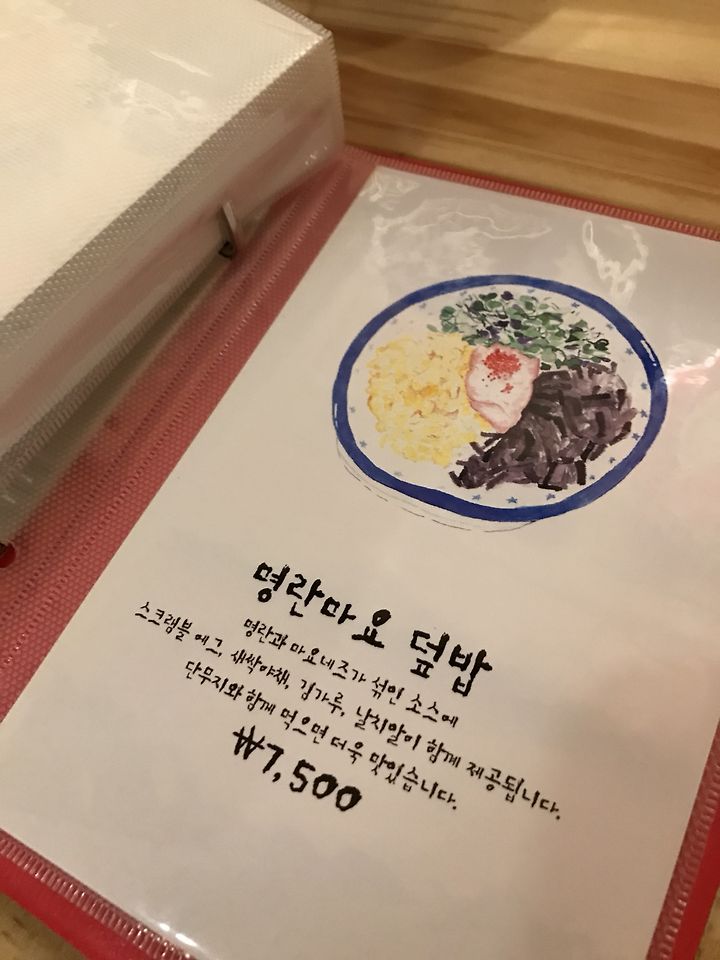 명란마요 덮밥
명란과 마요네즈가 섞인 소스에
스크램블 에그, 새싹야채, 김가루, 날치알이 함께 제공됩니다.
단무지와 함께 먹으면 더욱 맛있습니다.
₩7,500